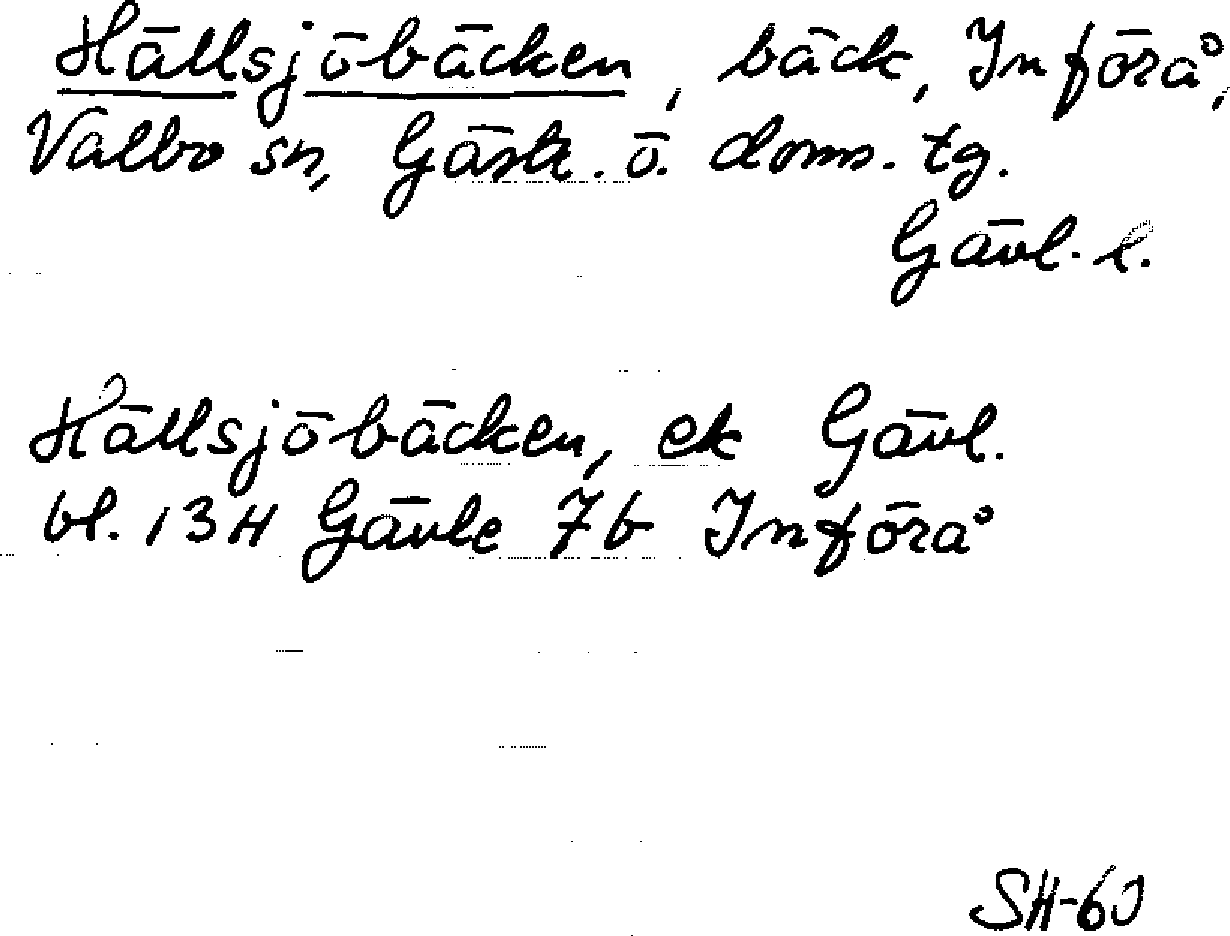 Hällsjöbäcken, bäck, Införå,
Valbo sn, Gästr. ö. doms. tg.
Gävl. l.
Hällsjöbäcken, ek Gävl.
bl. 13H Gävle 7b Införå
SH-60